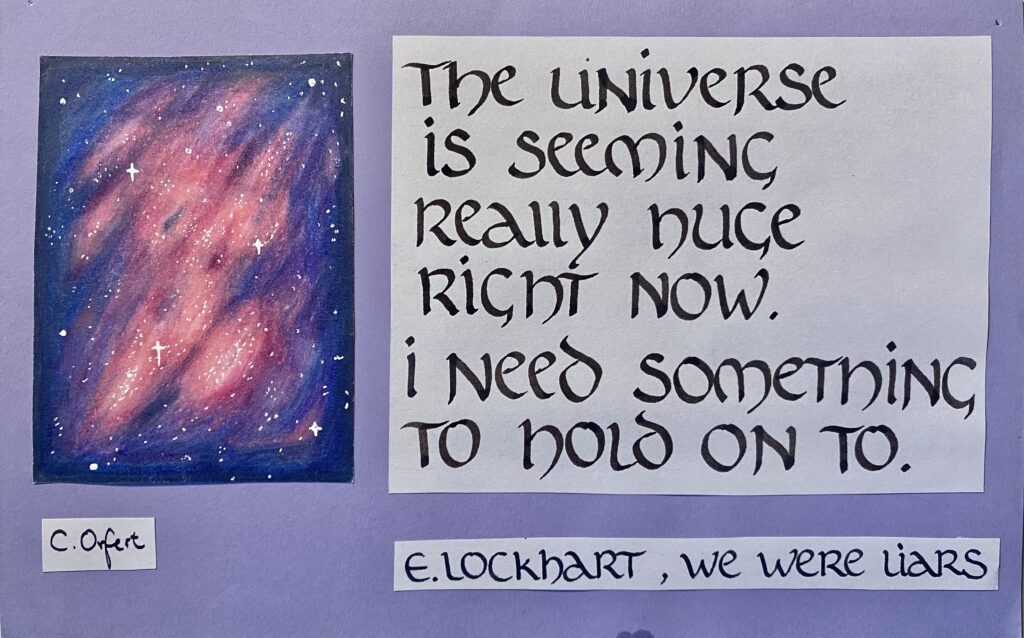 The universe
is seeming
really huge
right now.
i need something
to hold on to.
C. Orfert
E. Lockhart, we were liars